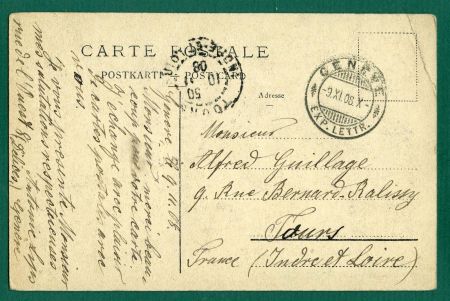 CARTE POSTALE
POSTKARTE
Adresse
GENÈVE
-9.XI.08.X-
EXP. LETTR.
Monsieur
Alfred Guillage
9. Rue Bernard-Palissy
Tours
France (Indre et Loire)
Genève, 9. 11. 08.
Monsieur merci beau-
coup pour votre carte.
J'échange avec plaisir
de cartes postales avec
vous.
Je vous présente Monsieur
mes salutations respectueuses
Genève